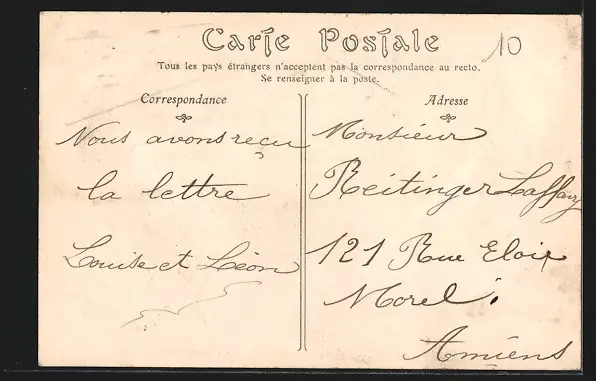 Carte Postale
10
Tous les pays étrangers n'acceptent pas la correspondance au recto.
Se renseigner à la poste.
Correspondance
Nous avons reçu
la lettre
Louise et Léon
Adresse
Monsieur
Reitinger
121 Rue Eloi
Morel.
Amiens